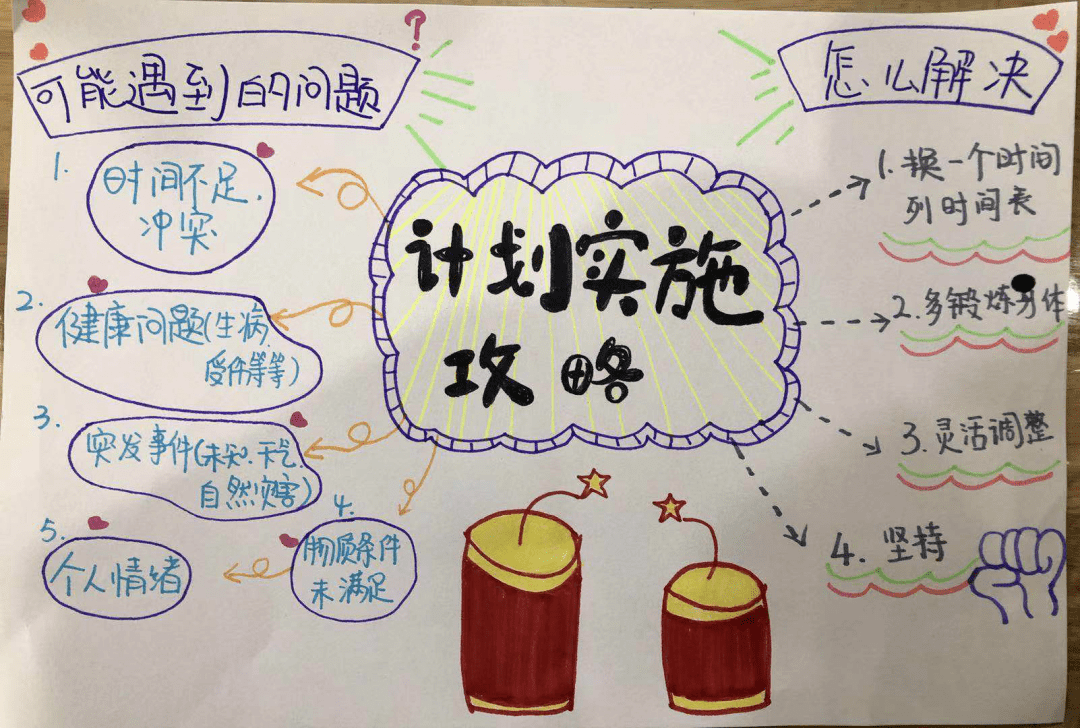 可能遇到的问题
?
1.
时间不足、
冲突
2.
健康问题(生病,
受伤等等)
3.
突发事件(未知、天气、
自然灾害)
4.
物质条件
未满足
5.
个人情绪
计划实施
攻略
怎么解决
1.换一个时间
列时间表
2.多锻炼身体
3.灵活调整
4.坚持